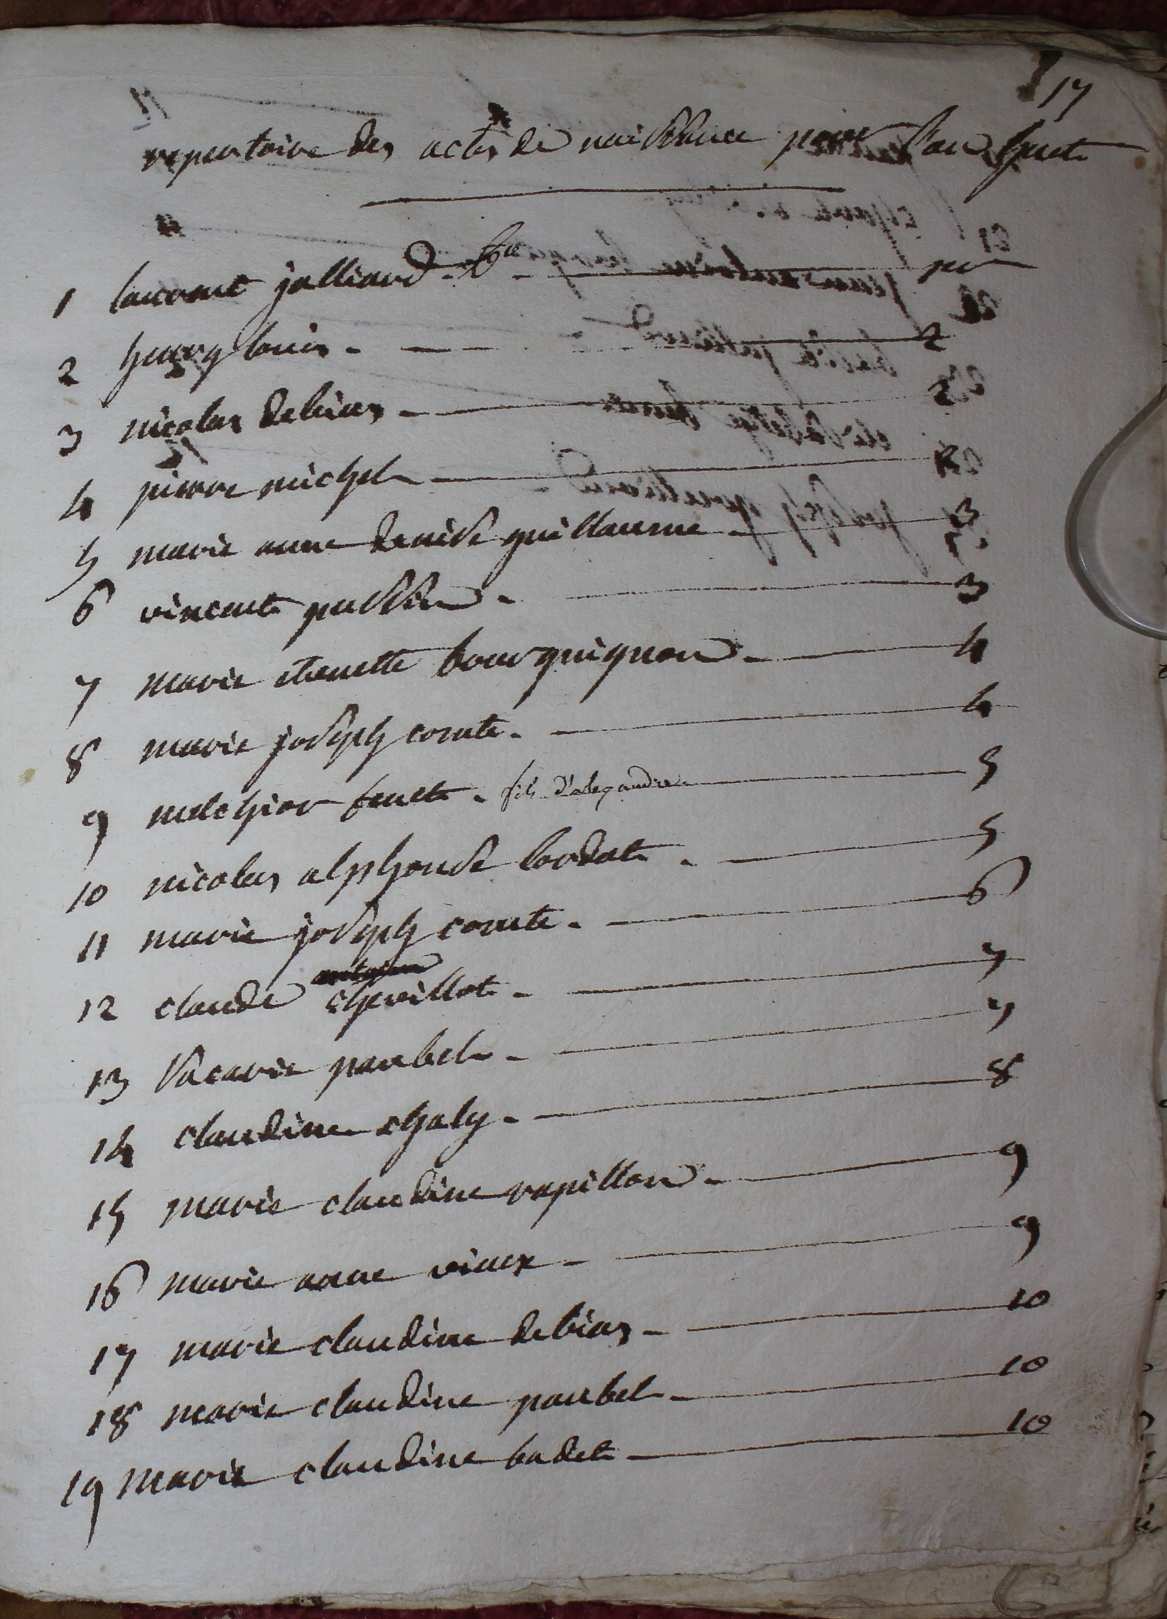 17
repertoire des actes de naissance pour l'an huit
1 laurent jalliard pr
2 henry louis. 2
3 nicolas debias 2
4 pierre michel 2
5 marie anne denise guillaume 3
6 vincent 3
7 marie etienette bourguignon. 4
8 marie joseph comte. 4
9 melchior fils d'alexandre 5
10 nicolas alphonse lordat. 5
11 marie joseph comte. 6
12 claude chevillot. 7
13 panbel. 7
14 claudine chaly. 8
15 marie claudine papillon. 9
16 marie anne viaux 9
17 marie claudine debias 10
18 marie claudine panbel 10
19 marie claudine badet 10